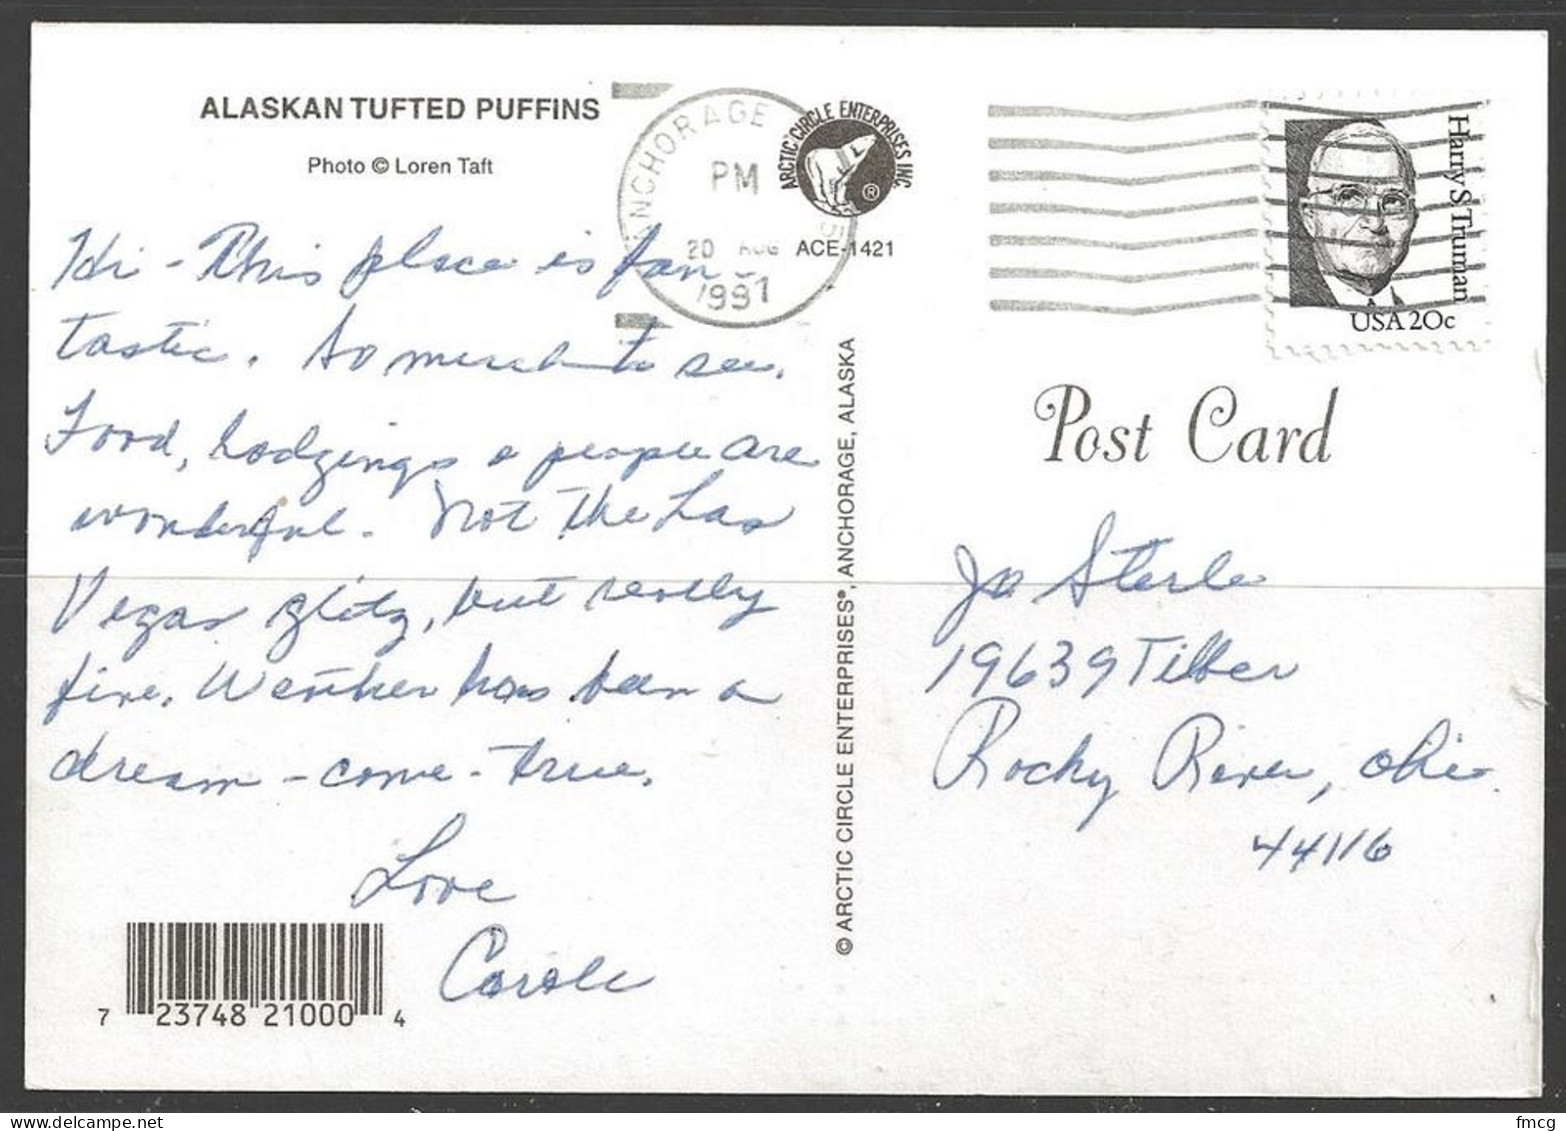 ALASKAN TUFTED PUFFINS
Photo © Loren Taft
ANCHORAGE
PM
20 AUG
1997
ARCTIC CIRCLE ENTERPRISES INC.
®
ACE-1421
Harry S Truman
USA 20c
Post Card
Hi - This place is fan-
tastic. So much to see.
Food, lodgings & people are
wonderful. Not the Las
Vegas glitz, but really
fine. Weather has been a
dream-come-true.
Love
Carole
© ARCTIC CIRCLE ENTERPRISES®, ANCHORAGE, ALASKA
Jo Sterle
19639 Tilber
Rocky River, Ohio
44116
7 23748 21000 4
fmcg